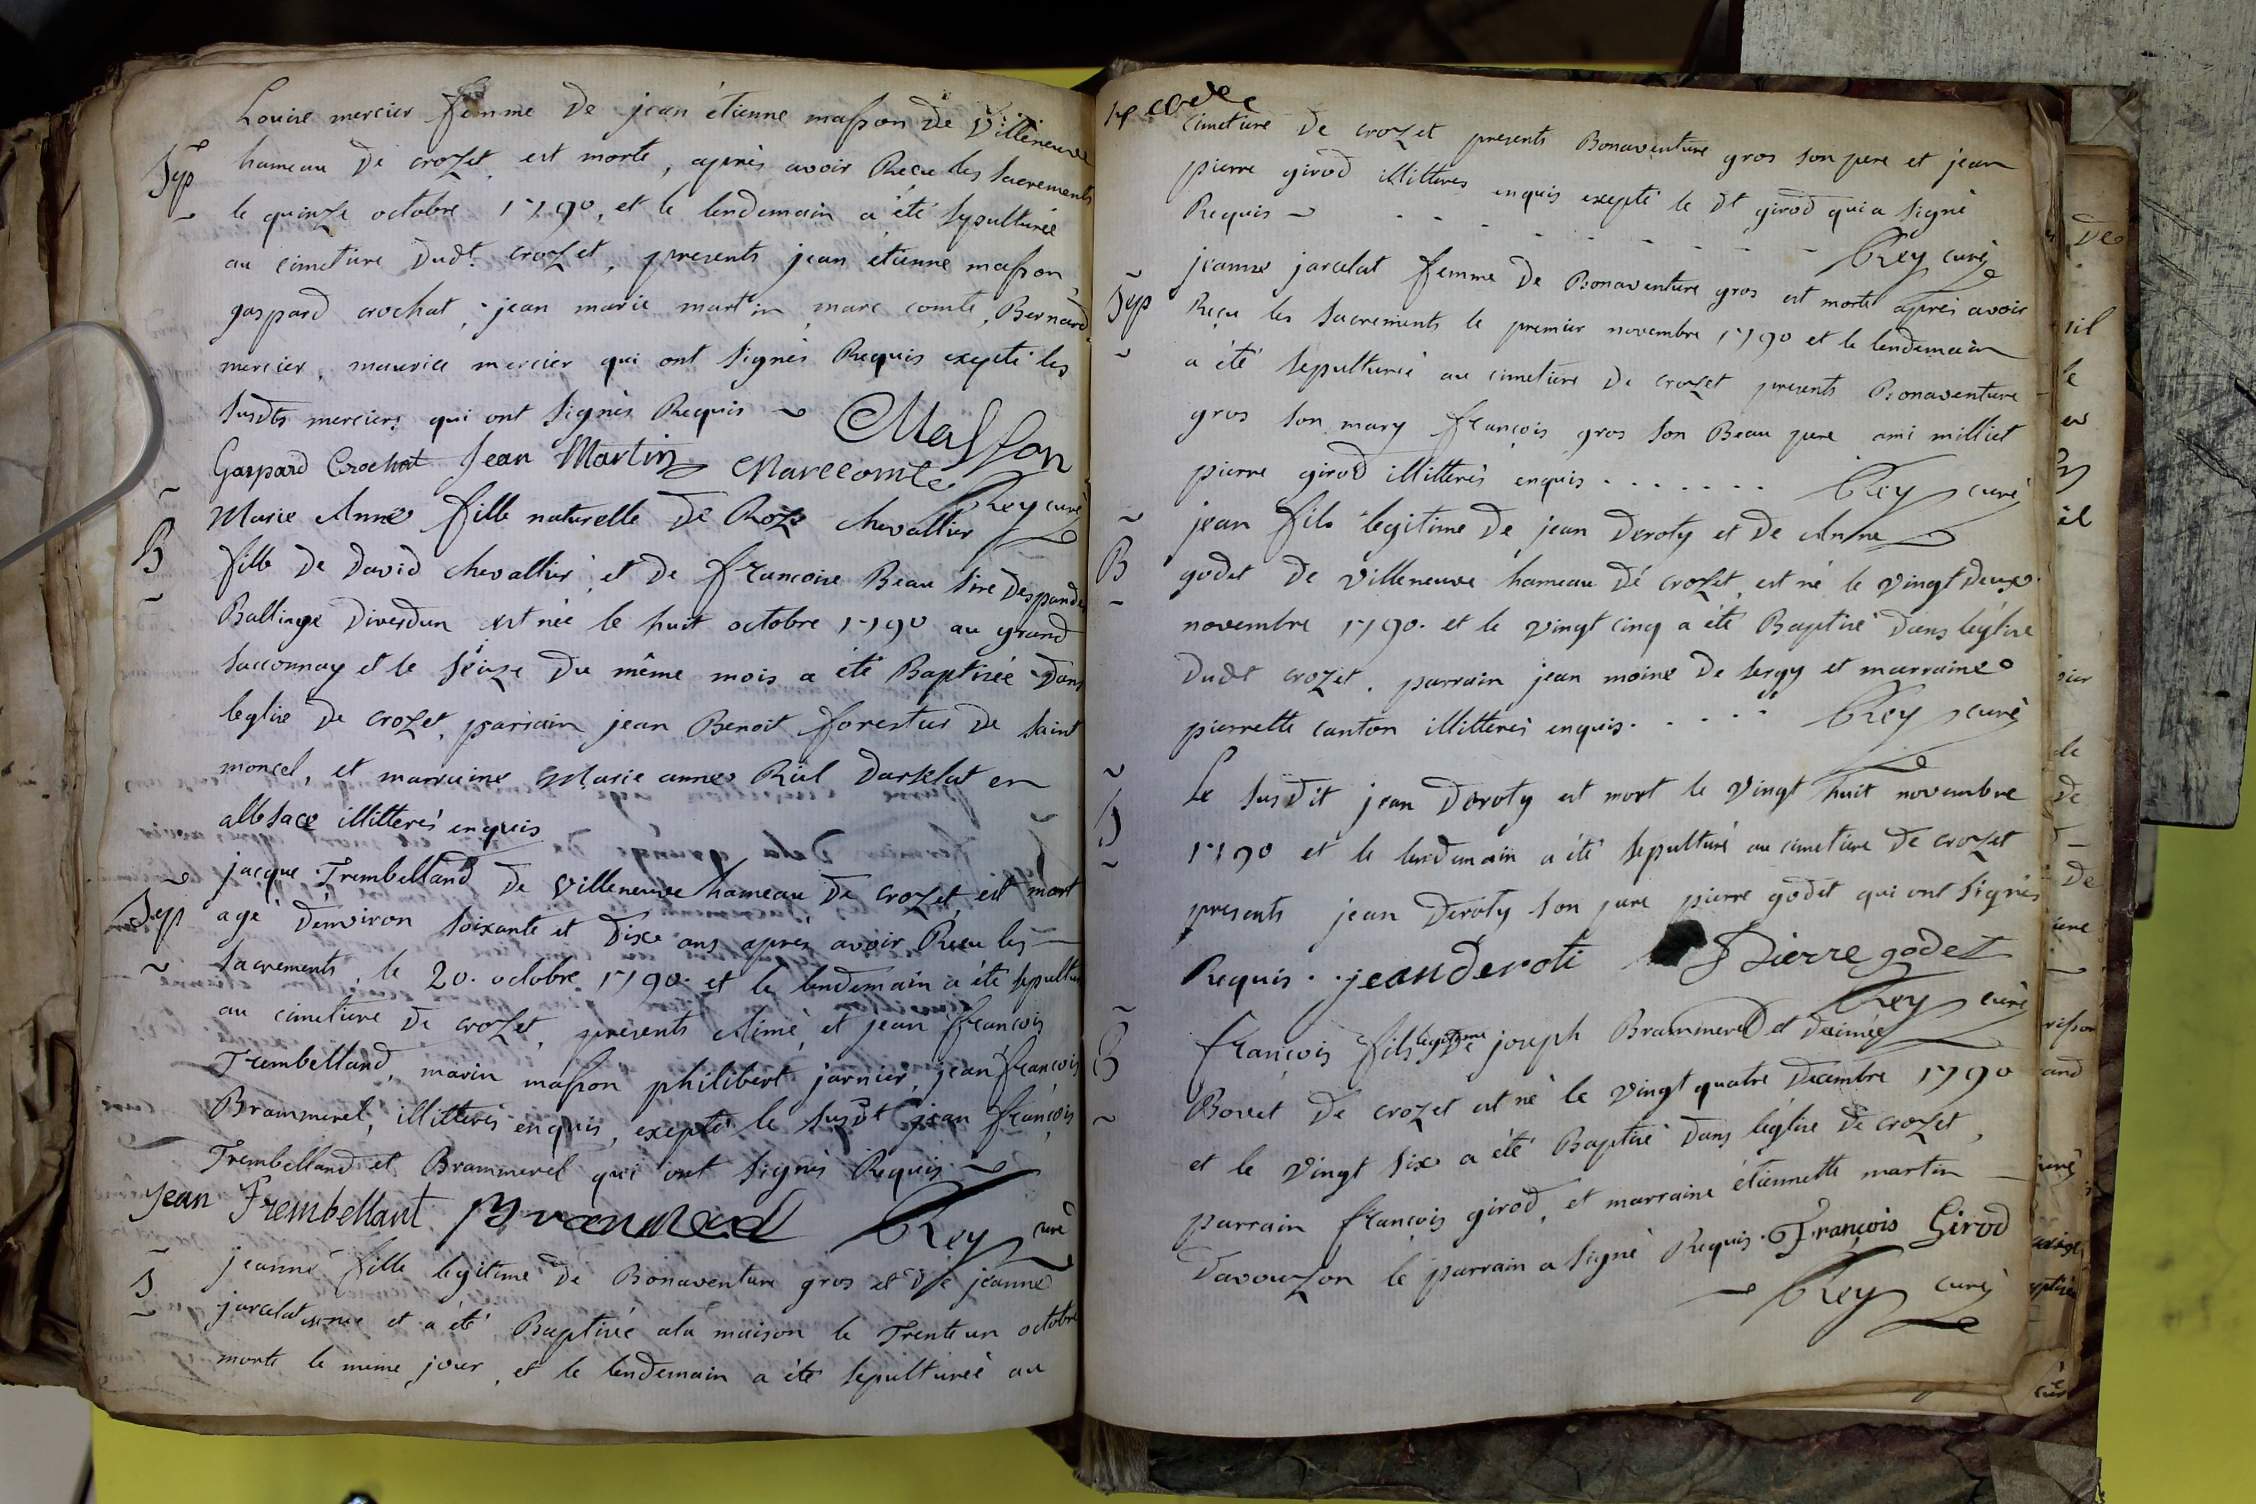 Louise mercier femme De jean étienne masson De Villeneuve
Sep
hameau De crozet est morte, après avoir Reçu les sacrements
le quinze octobre 1790, et le lendemain a été sepulturée
au cimetière Dudt crozet, presents jean étienne masson,
gaspard crochat, jean marie martin, marc comte, Bernard
mercier, maurice mercier qui ont signés Requis exepté les
susdts merciers qui ont signés Requis Masson
Gaspard Crochat Jean Martin Marc comte
Rey curé
B
Marie Anne fille naturelle De Roze chevallier
fille De David chevallier, et De francoise Beau sire Des pandes
Ballinge Diverdun est née le huit octobre 1790 au grand
sacconnay et le seize Du même mois a été Baptisée Dans
leglise De crozet, parrain jean Benoit forestus De saint
moncel, et marraine Marie anne Riel Darklat en
allsace illitterés enquis
Sep
jacque Trembelland De villeneuve hameau De crozet, est mort
agé Denviron soixante et Dix ans après avoir Reçu les
sacrements, le 20. octobre 1790. et le lendemain a été sepulturé
au cimetière De crozet, presents Aimé, et jean françois
Trembelland, marin masson philibert jarnier, jean françois
Brammerel, illitterés enquis, exepté le susdt jean françois
Trembelland et Brammerel qui ont signés Requis
Jean Trembellant Rey curé
S
jeanne fille legitime De Bonaventure gros et De jeanne
jarcelat née et a été Baptisée ala maison le Trente un octobre
morte le meme jour, et le lendemain a été sepulturée au
cimetière De crozet presents Bonaventure gros son pere et jean
pierre girod illitteres enquis exepté le Dt girod qui a signé
Requis
Rey curé
Sep
jeanne jarcelat femme De Bonaventure gros est morte après avoir
Reçu les sacrements le premier novembre 1790 et le lendemain
a été sepulturée au cimetière De crozet presents Bonaventure
gros son mary françois gros son Beau pere ami milliet
pierre girod illitterés enquis . . . . . . . Rey curé
B
jean fils legitime De jean Deroty et De Anne
godet De villeneuve hameau De crozet, est né le vingt Deux
novembre 1790. et le vingt cinq a été Baptisé Dans léglise
Dudt crozet, parrain jean moine De sergy et marraine
pierrette canton illitterés enquis. . . . . . Rey curé
S
Le susdit jean Deroty est mort le vingt huit novembre
1790 et le lendemain a été sepulturé au cimetière De crozet
presents jean Deroty son pere pierre godet qui ont signés
Requis . . jean deroti Pierre godet
Rey curé
B
françois fils legitime De joseph Brammerel et Daimée
Bovet De crozet est né le vingt quatre Decembre 1790
et le vingt six a été Baptisé Dans léglise De crozet,
parrain françois girod, et marraine étiennette martin
Davouzon le parrain a signé Requis. François Girod
Rey curé